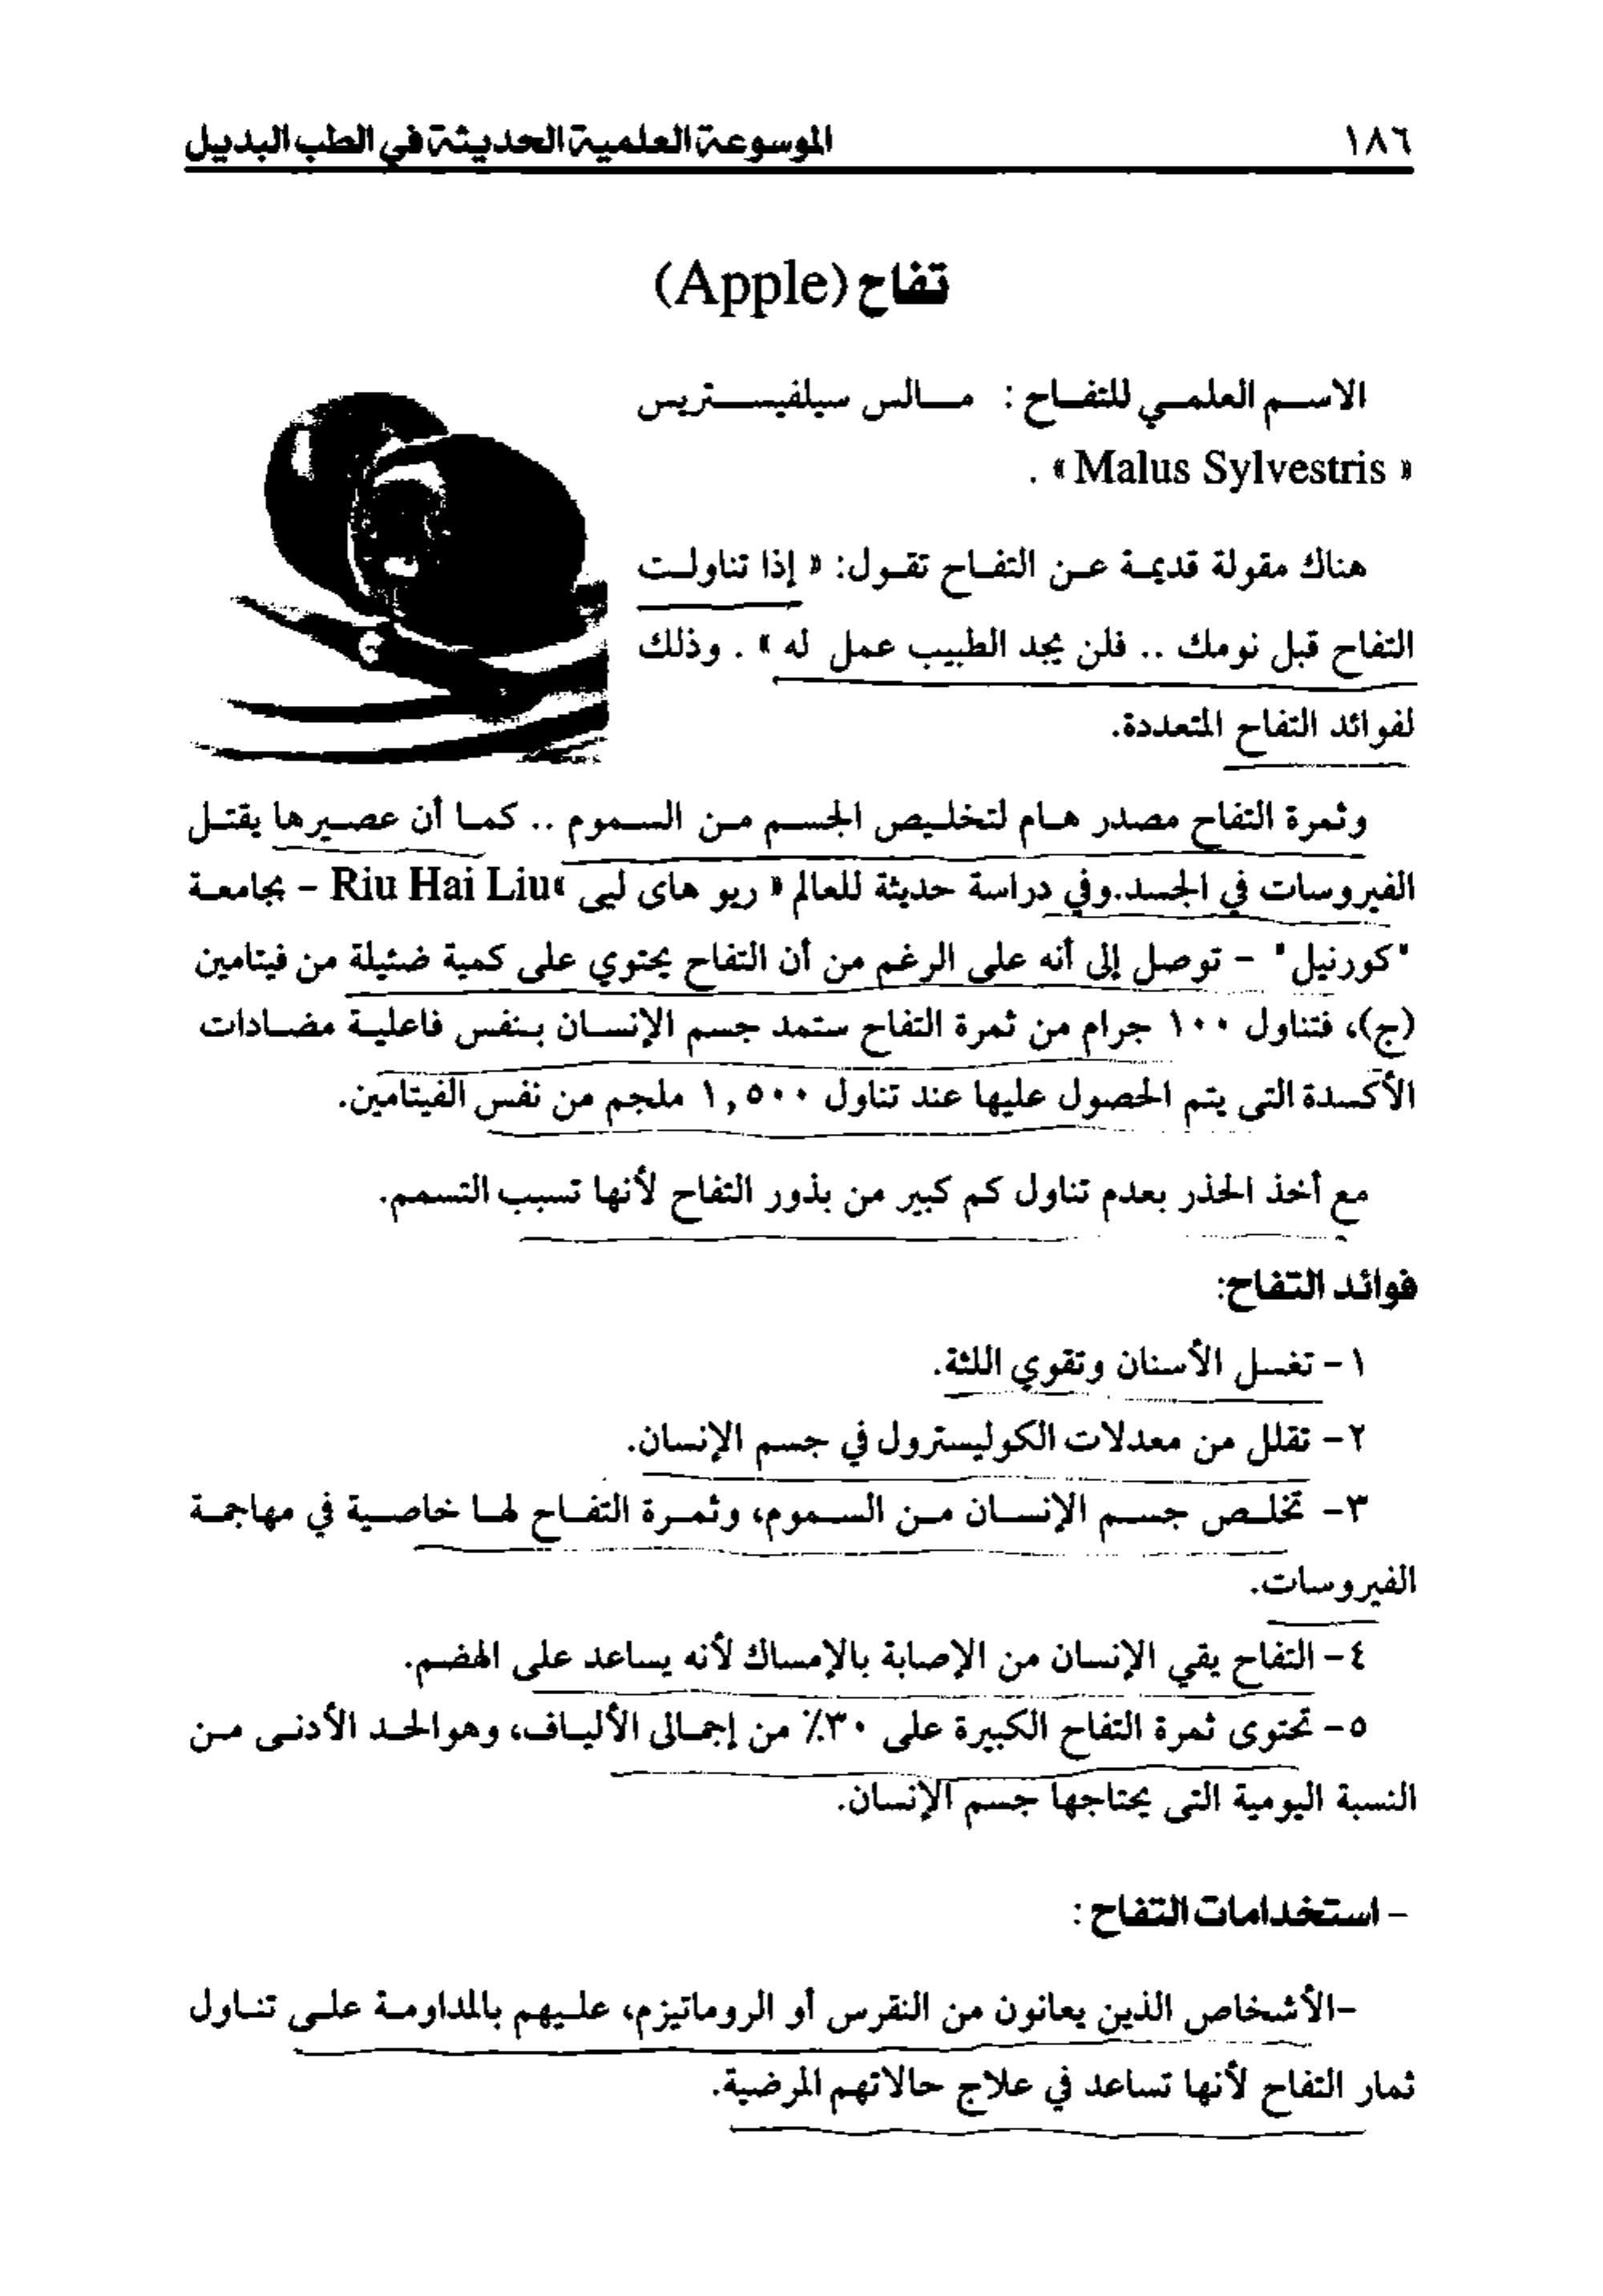 ١٨٦ الموسوعة العلمية الحديثة في الطب البديل
تفاح (Apple)
الاسم العلمي للتفاح : مالس سيلفيستريس
« Malus Sylvestris » .
هناك مقولة قديمة عن التفاح تقول: « إذا تناولت
التفاح قبل نومك .. فلن يجد الطبيب عمل له » . وذلك
لفوائد التفاح المتعددة.
وثمرة التفاح مصدر هام لتخليص الجسم من السموم .. كما أن عصيرها يقتل
الفيروسات في الجسد.وفي دراسة حديثة للعالم « ريو هاى ليى »Riu Hai Liu – بجامعة
"كورنيل" – توصل إلى أنه على الرغم من أن التفاح يحتوي على كمية ضئيلة من فيتامين
(ج)، فتناول ١٠٠ جرام من ثمرة التفاح ستمد جسم الإنسان بنفس فاعلية مضادات
الأكسدة التى يتم الحصول عليها عند تناول ١,٥٠٠ ملجم من نفس الفيتامين.
مع أخذ الحذر بعدم تناول كم كبير من بذور التفاح لأنها تسبب التسمم.
فوائد التفاح:
١– تغسل الأسنان وتقوي اللثة.
٢– تقلل من معدلات الكوليسترول في جسم الإنسان.
٣– تخلص جسم الإنسان من السموم، وثمرة التفاح لها خاصية في مهاجمة
الفيروسات.
٤– التفاح يقي الإنسان من الإصابة بالإمساك لأنه يساعد على الهضم.
٥– تحتوى ثمرة التفاح الكبيرة على ٣٠٪ من إجمالى الألياف، وهوالحد الأدنى من
النسبة اليومية التى يحتاجها جسم الإنسان.
– استخدامات التفاح :
–الأشخاص الذين يعانون من النقرس أو الروماتيزم، عليهم بالمداومة على تناول
ثمار التفاح لأنها تساعد في علاج حالاتهم المرضية.